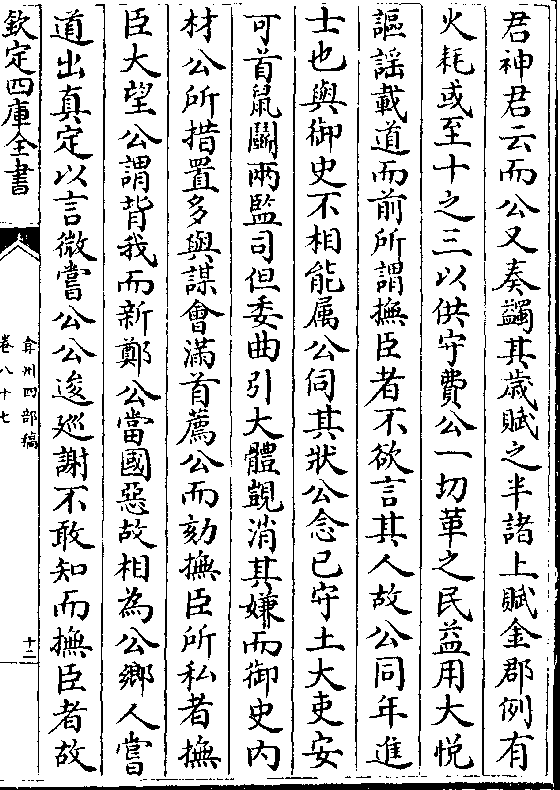 君神君云而公又奏蠲其歲賦之半諸上賦金郡例有
火耗或至十之三以供守費公一切革之民益用大悅
謳謡載道而前所謂撫臣者不欲言其人故公同年進
士也與御史不相能属公伺其狀公念已守土大吏安
可首鼠鬭兩監司但委曲引大體覬消其嫌而御史内
材公所措置多與謀會滿首薦公而劾撫臣所私者撫
臣大望公謂背我而新鄭公當國惡故相為公鄉人嘗
道出真定以言微嘗公公逡廵謝不敢知而撫臣者故
欽定四庫全書
弇州四部稿
卷八十七
十三